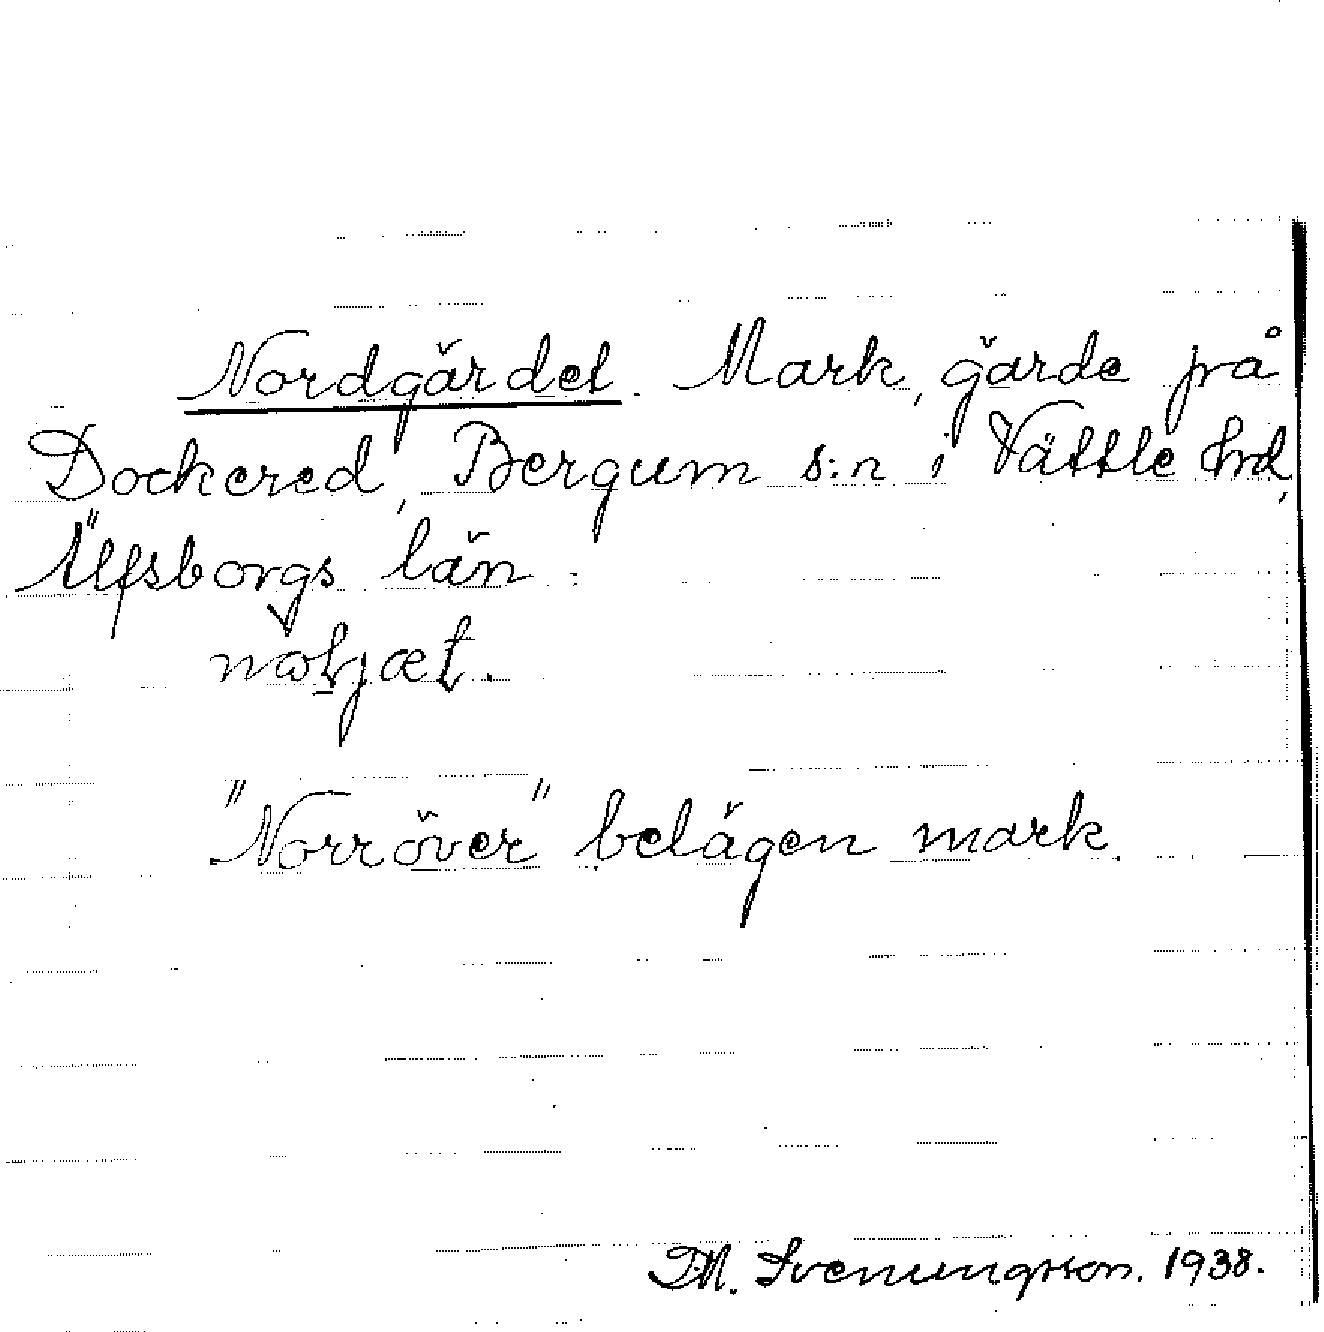 Nordgärdet. Mark, gärde på
Dockered, Bergum s:n i Vättle hrd,
Älfsborgs län.
"Norröver" belägen mark.
D.M. Svenungsson. 1938.